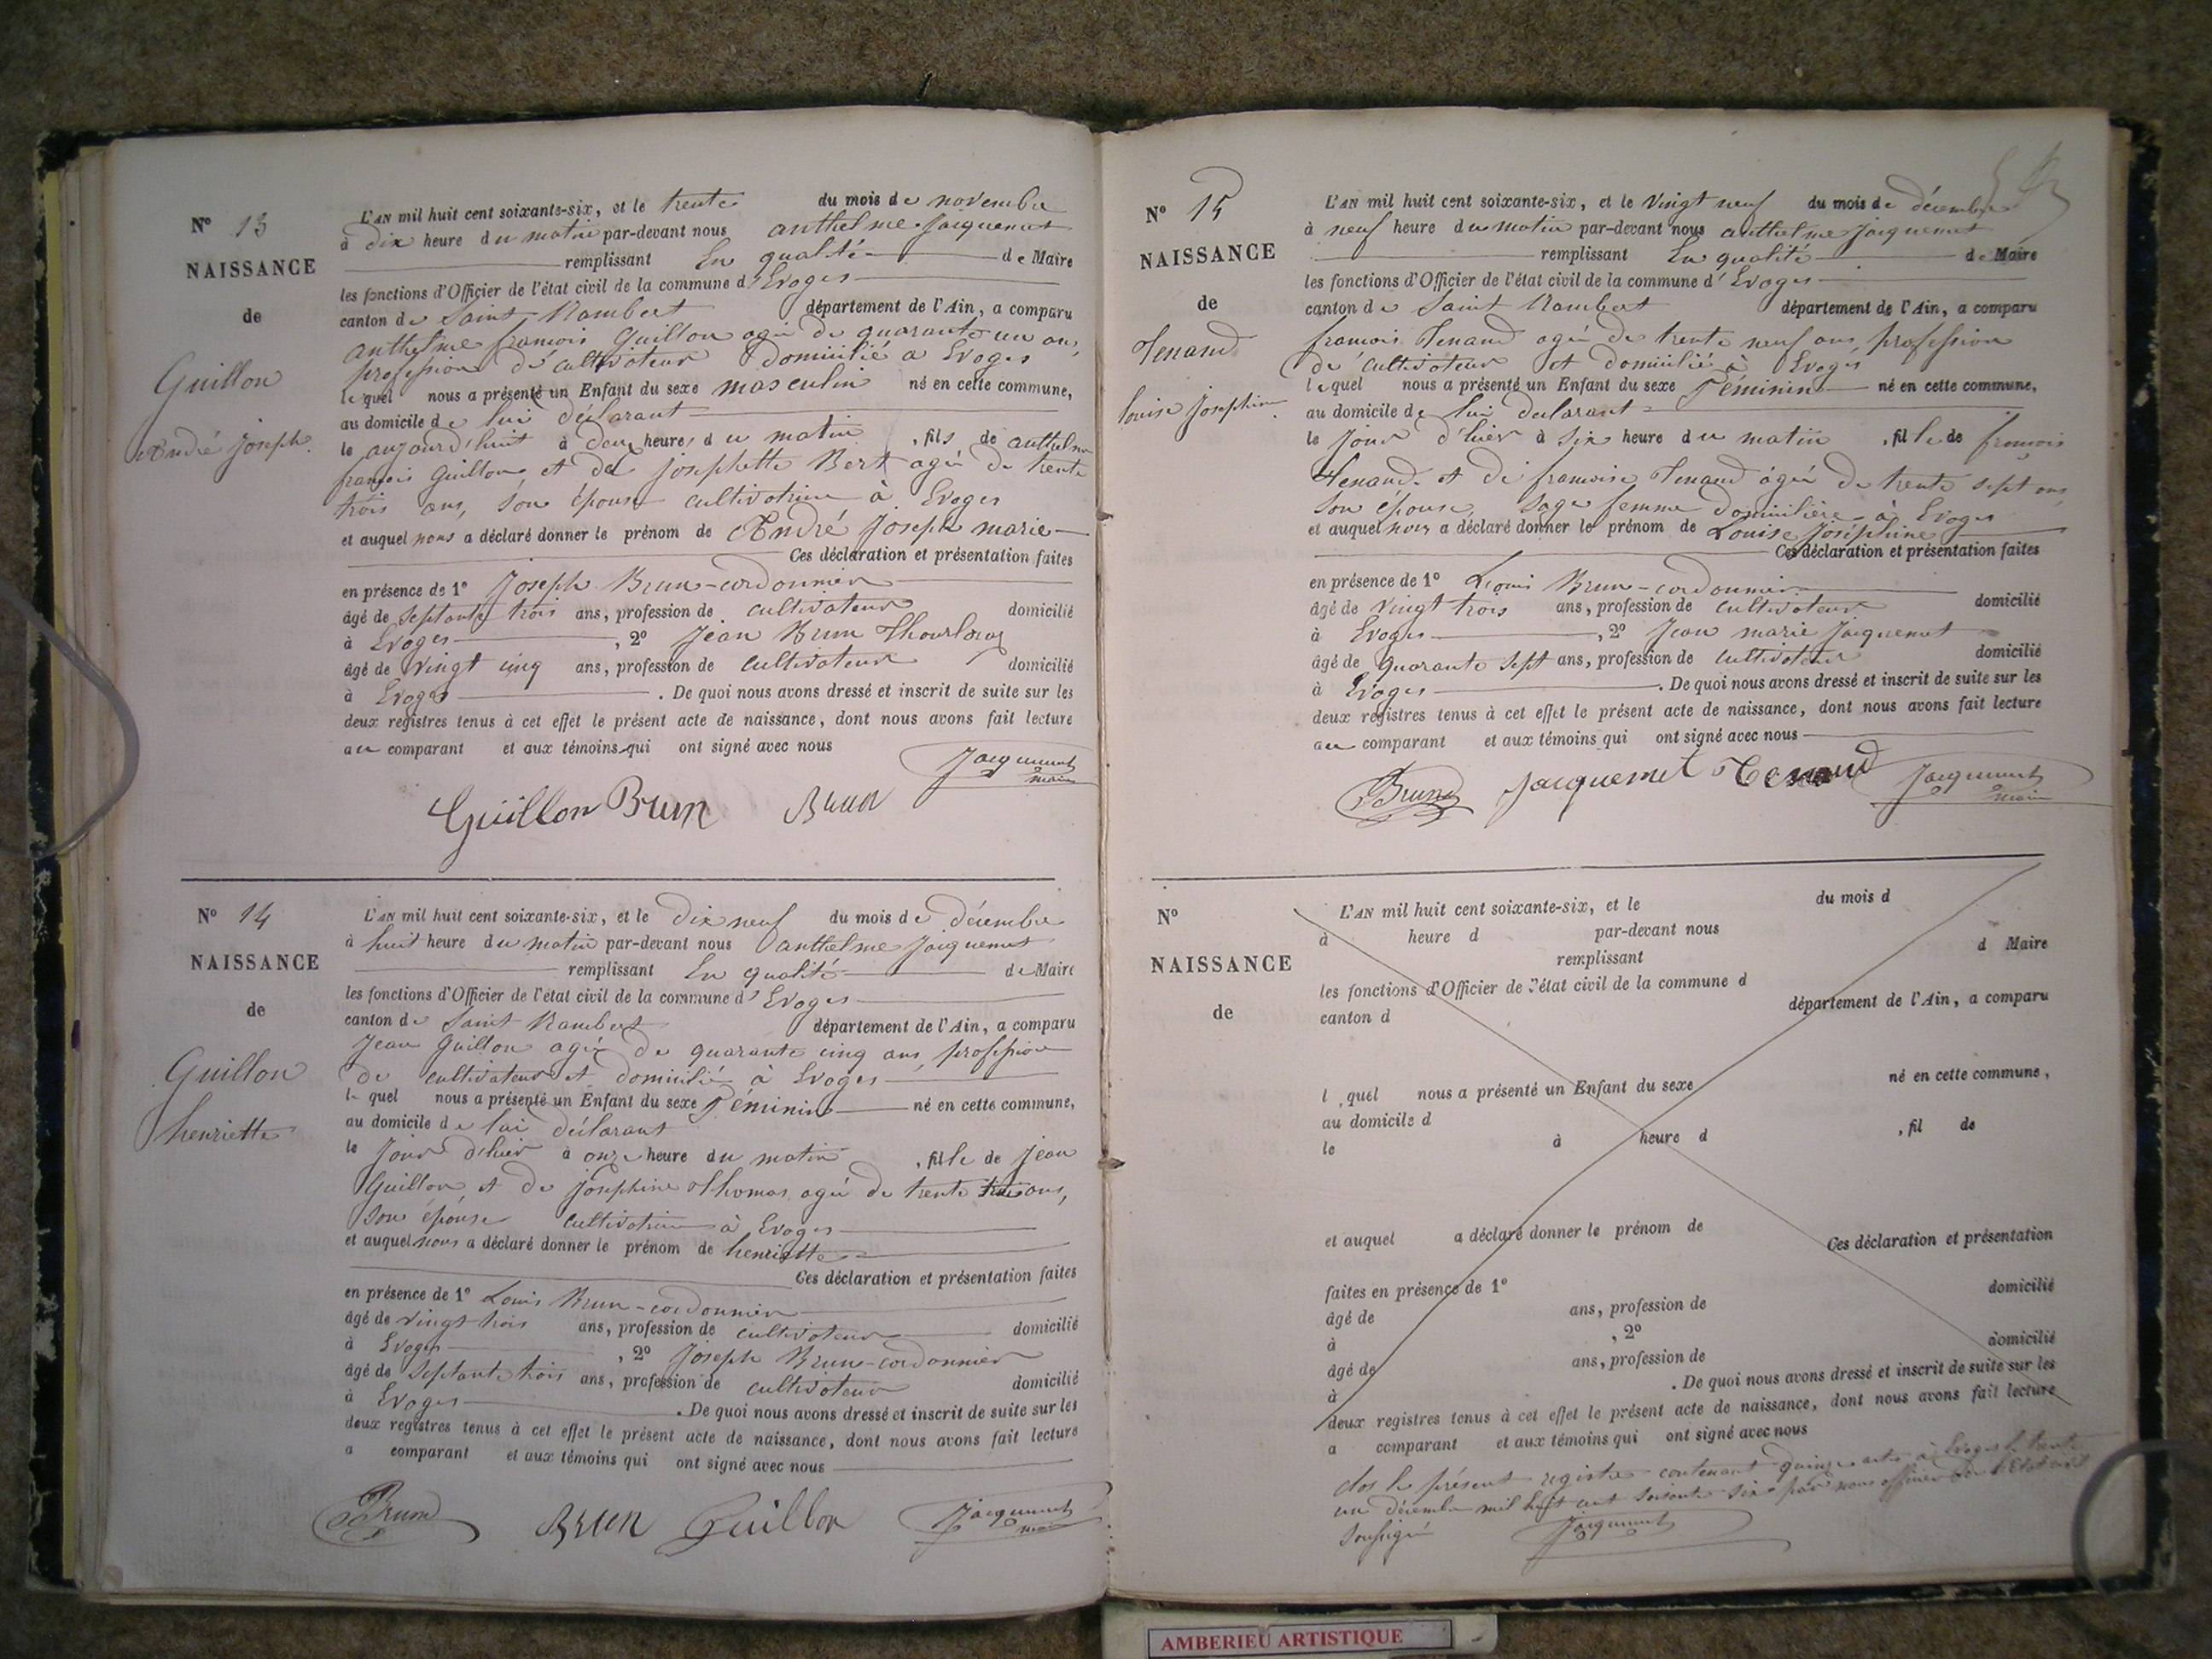 N° 13
NAISSANCE
de
Guillon
André joseph.
L'AN mil huit cent soixante-six, et le trente du mois de novembre
à dix heure du matin par-devant nous anthelme Jacquemet
remplissant En qualité de Maire
les fonctions d'Officier de l'état civil de la commune d'Evoges
canton de Saint Rambert département de l'Ain, a comparu
anthelme francois Guillon agé de quarante un ans,
profession de cultivateur domicilié a Evoges
lequel nous a présenté un Enfant du sexe masculin né en cette commune,
au domicile de lui déclarant
le aujourd'huit à deux heures du matin, fils de anthelme
françois Guillon, et de josephette Bert agée de trente
trois ans, son épouse cultivatrice à Evoges
et auquel nous a déclaré donner le prénom de André Joseph marie
Ces déclaration et présentation faites
en présence de 1° Joseph Brun-cordonnier
âgé de septante trois ans, profession de cultivateur domicilié
à Evoges, 2° Jean Brun
âgé de vingt cinq ans, profession de cultivateur domicilié
à Evoges. De quoi nous avons dressé et inscrit de suite sur les
deux registres tenus à cet effet le présent acte de naissance, dont nous avons fait lecture
au comparant et aux témoins qui ont signé avec nous
Jacquemet
maire
Guillon Brun Brun
N° 14
NAISSANCE
de
Guillon
henriette
L'AN mil huit cent soixante-six, et le dix neuf du mois de décembre
à huit heure du matin par-devant nous anthelme Jacquemet
remplissant En qualité de Maire
les fonctions d'Officier de l'état civil de la commune d'Evoges
canton de Saint Rambert département de l'Ain, a comparu
Jean Guillon agé de quarante cinq ans, profession
de cultivateur et domicilié à Evoges
lequel nous a présenté un Enfant du sexe Féminin né en cette commune,
au domicile de lui déclarant
le jour d'hier à onze heure du matin, fille de Jean
Guillon, et de josephine Thomas agée de trente ans,
son épouse cultivatrice à Evoges
et auquel nous a déclaré donner le prénom de henriette
Ces déclaration et présentation faites
en présence de 1° Louis Brun-cordonnier
âgé de vingt trois ans, profession de cultivateur domicilié
à Evoges, 2° Joseph Brun-cordonnier
âgé de septante trois ans, profession de cultivateur domicilié
à Evoges. De quoi nous avons dressé et inscrit de suite sur les
deux registres tenus à cet effet le présent acte de naissance, dont nous avons fait lecture
a comparant et aux témoins qui ont signé avec nous
Brun Brun Guillon Jacquemet
maire
N° 15
NAISSANCE
de
Tenand
louise Josephine
L'AN mil huit cent soixante-six, et le Vingt neuf du mois de décembre
à neuf heure du matin par-devant nous anthelme Jacquemet
remplissant En qualité de Maire
les fonctions d'Officier de l'état civil de la commune d'Evoges
canton de Saint Rambert département de l'Ain, a comparu
francois Tenand agé de trente neuf ans, profession
de cultivateur et domicilié à Evoges
lequel nous a présenté un Enfant du sexe Féminin né en cette commune,
au domicile de lui declarant
le jour d'hier à six heure du matin, fille de francois
Tenand et de francoise Tenand agée de trente sept ans
son épouse, sage femme domicilière à Evoges
et auquel nous a déclaré donner le prénom de Louise Joséphine
Ces déclaration et présentation faites
en présence de 1° Louis Brun-cordonnier
âgé de vingt trois ans, profession de cultivateur domicilié
à Evoges, 2° Jean marie Jacquemet
âgé de quarante sept ans, profession de cultivateur domicilié
à Evoges. De quoi nous avons dressé et inscrit de suite sur les
deux registres tenus à cet effet le présent acte de naissance, dont nous avons fait lecture
au comparant et aux témoins qui ont signé avec nous
Brun Jacquemet Tenand Jacquemet
maire
N°
NAISSANCE
de
L'AN mil huit cent soixante-six, et le du mois d
à heure d par-devant nous
remplissant d Maire
les fonctions d'Officier de l'état civil de la commune d
canton d département de l'Ain, a comparu
l quel nous a présenté un Enfant du sexe né en cette commune,
au domicile d
le à heure d, fil de
et auquel a déclaré donner le prénom de
Ces déclaration et présentation
faites en présence de 1°
âgé de ans, profession de domicilié
à, 2°
âgé de ans, profession de domicilié
à. De quoi nous avons dressé et inscrit de suite sur les
deux registres tenus à cet effet le présent acte de naissance, dont nous avons fait lecture
a comparant et aux témoins qui ont signé avec nous
clos le présent registre contenant quinze acte à Evoges le trente
un décembre mil huit cent soixante six par nous officier de l'Etat civil
soussigné Jacquemet
AMBERIEU ARTISTIQUE